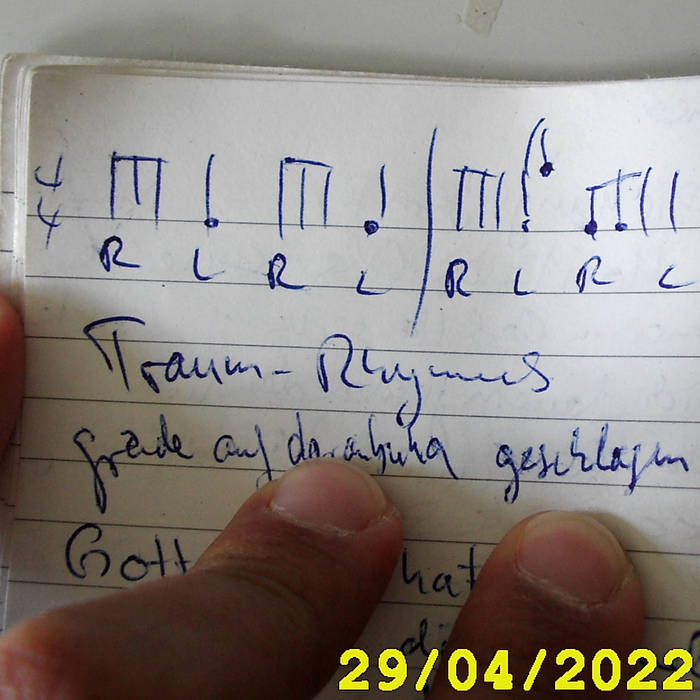 4
4
R L R L R L R L
Traum-Rhythmus
grade auf darabuka geschlagen
Gott hat
29/04/2022